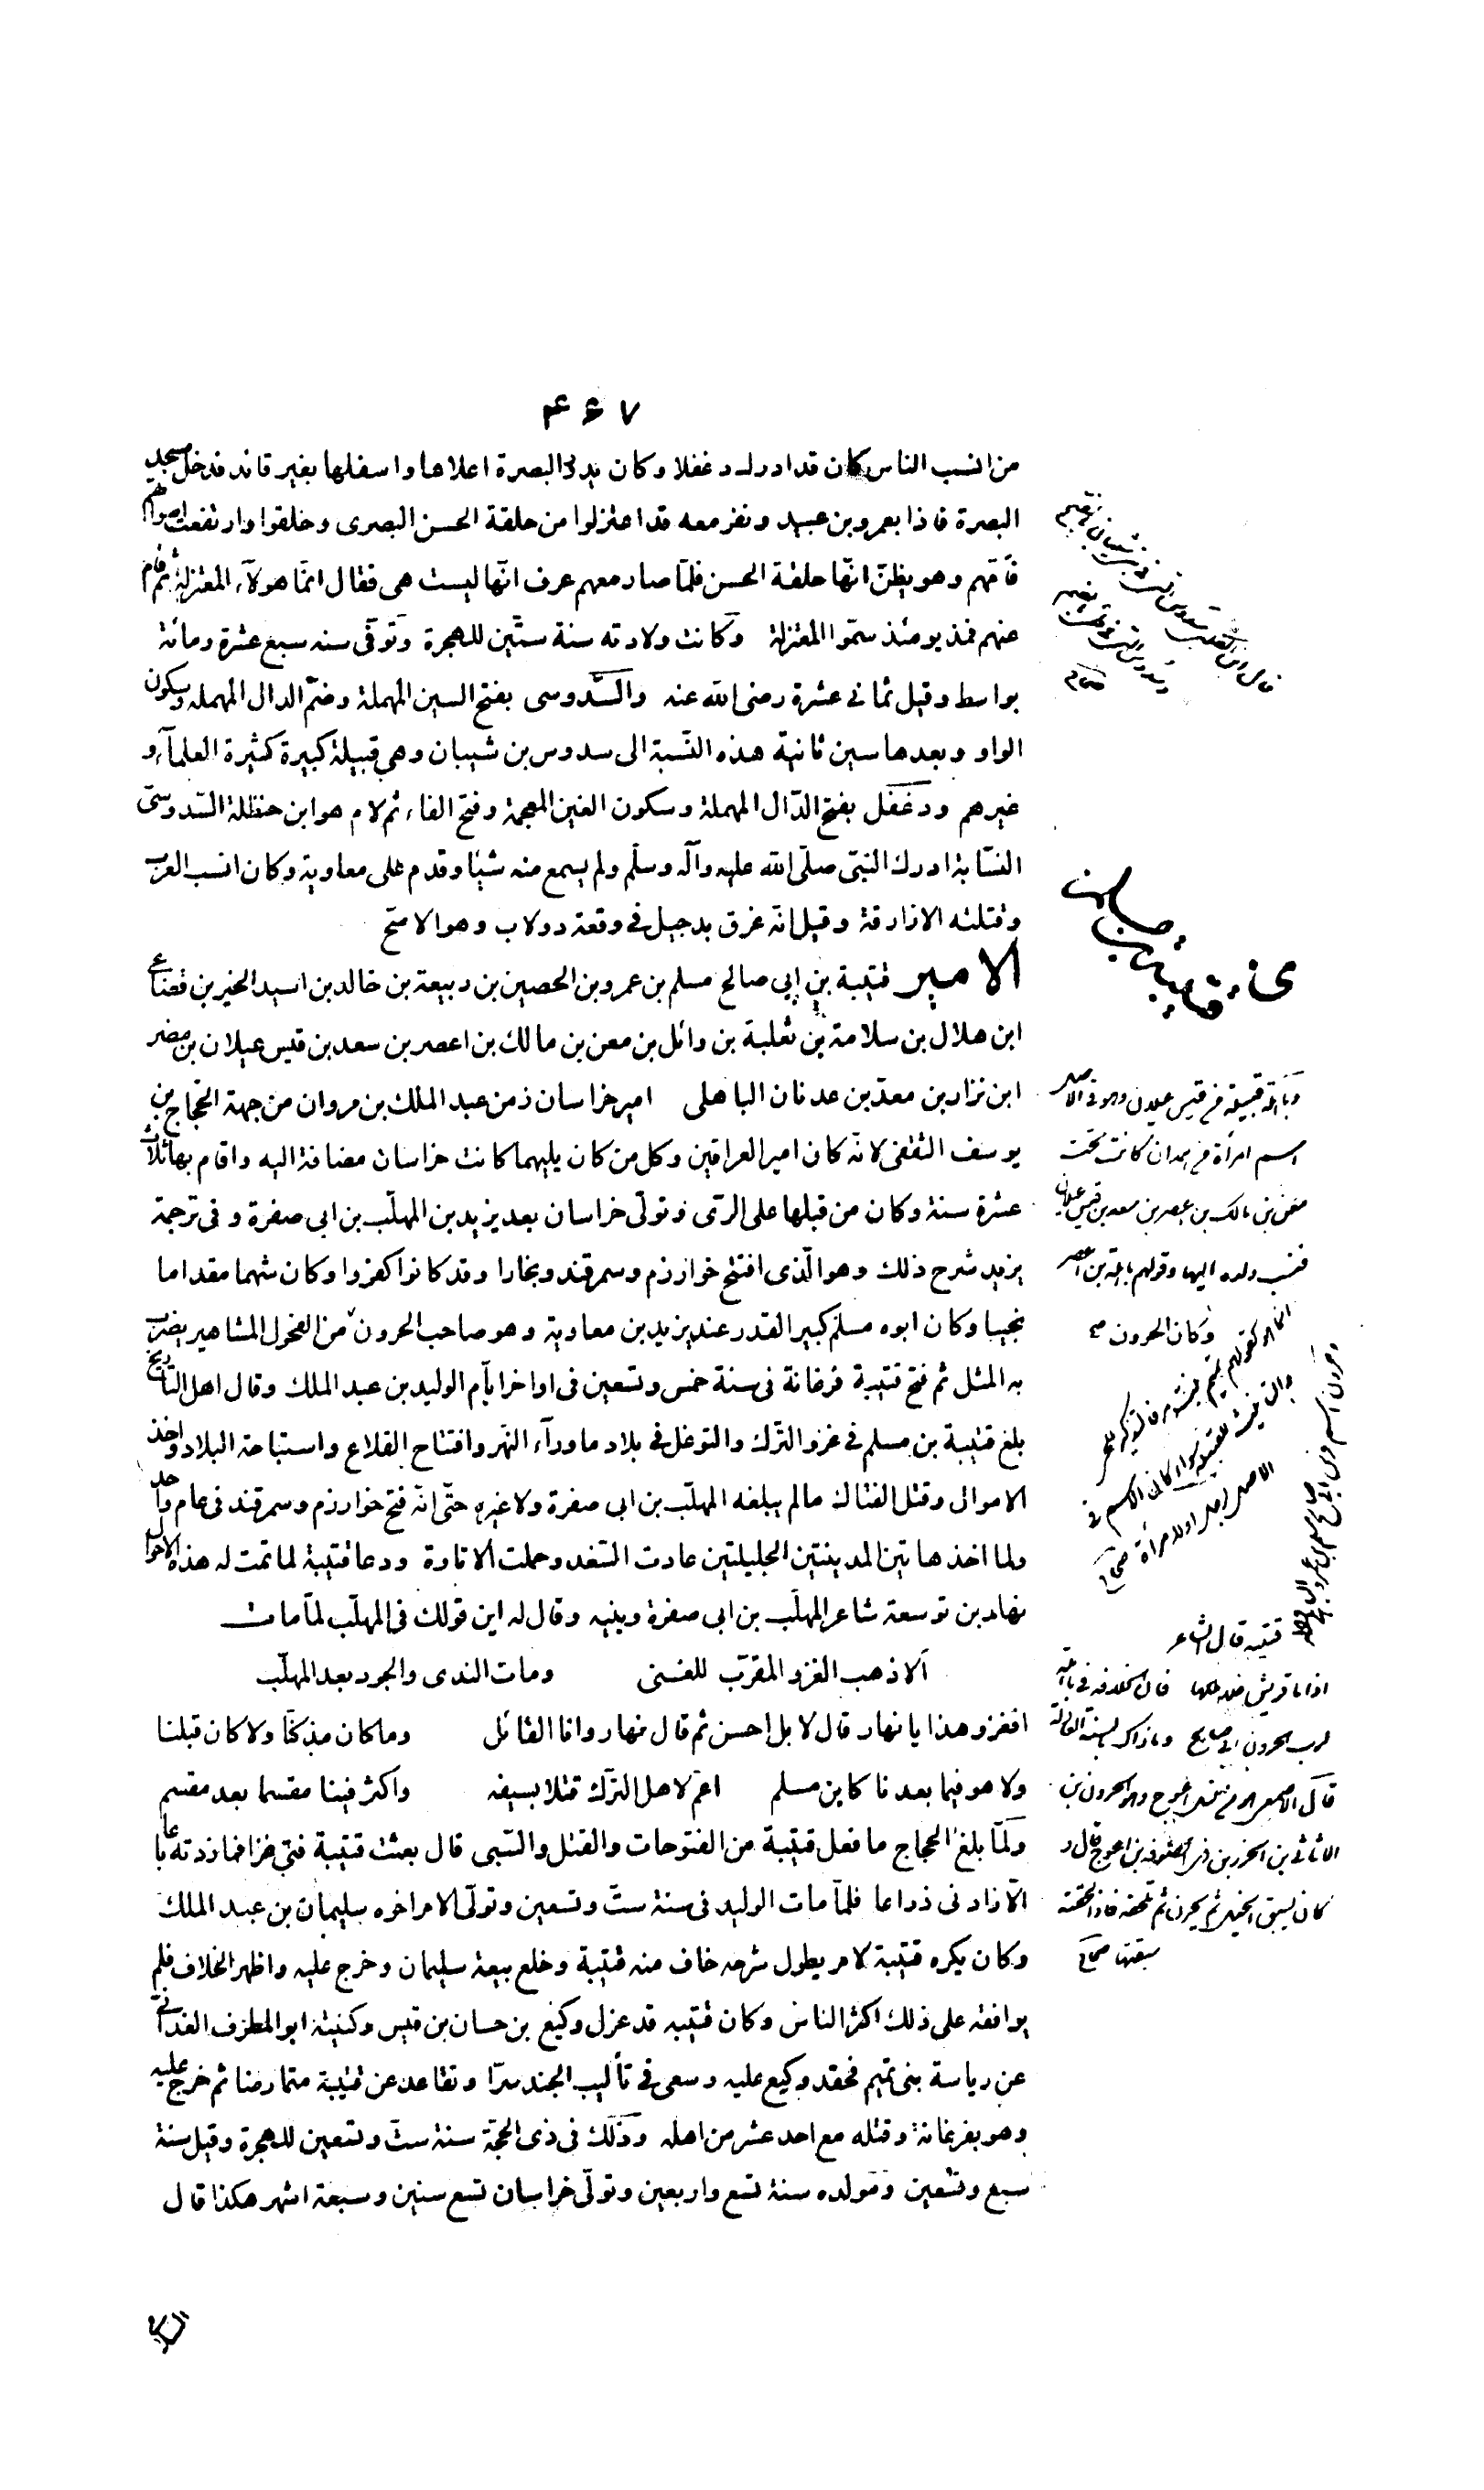 ۴۶۷
من انسب الناس كان قد ادرك دغفلا وكان يدور البصرة اعلاها واسفلها بغير قائد فدخل مسجد
البصرة فاذا بعمرو بن عبيد ونفر معه قد اعتزلوا من حلقة الحسن البصرى وحلقوا وارتفعت اصواتهم
فامّهم وهو يظنّ انّها حلقة الحسن فلمّا صار معهم عرف انّها ليست هى فقال انمّا هولآء المعتزلة ثم قام
عنهم فمذ يومئذ سمّوا المعتزلة وكانت ولادته سنة ستّين للهجرة وتوفّى سنه سبع عشرة ومائة
بواسط وقيل ثمانى عشرة رضى الله عنه والسّدوسى بفتح السين المهملة وضمّ الدال المهمله وسكون
الواو وبعدها سين ثانية هذه النّسبة الى سدوس بن شيبان وهى قبيلة كبيرة كثيرة العلمآء و
غيرهم ودغفل بفتح الدّال المهملة وسكون الغين المعجمة وفتح الفاء ثم لام هو ابن حنظلة السّدوسىّ
النسّابة ادرك النبّى صلّى الله عليه وآله وسلّم ولم يسمع منه شيئا وقدم على معاوية وكان انسب العرب
وقتلته الازارقة وقيل انّه غرق بدجيل فى وقعة دولاب وهو الاصحّ
الامير قتيبة بن ابى صالح مسلم بن عمرو بن الحصين بن ربيعة بن خالد بن اسيد الخير بن قضاعى
ابن هلال بن سلامة بن ثعلبة بن وائل بن معن بن مالك بن اعصر بن سعد بن قيس عيلان بن مضر
ابن نزار بن معدّ بن عدنان الباهلى امير خراسان زمن عبد الملك بن مروان من جهة الحجّاج بن
يوسف الثقفى لانّه كان امير العراقين وكل من كان يليهما كانت خراسان مضافة اليه واقام بها ثلاث
عشرة سنة وكان من قبلها على الرّى وتولّى خراسان بعد يزيد بن المهلّب بن ابى صفرة وفى ترجمة
يزيد شرح ذلك وهو الّذى افتتح خوارزم وسمرقند وبخارا وقد كانوا كفروا وكان شهما مقداما
نجيبا وكان ابوه مسلم كبير القدر عند يزيد بن معاوية وهو صاحب الحرون من الفحول المشاهير يضرب
به المثل ثم فتح قتيبة فرغانة فى سنة خمس وتسعين فى اواخر ايّام الوليد بن عبد الملك وقال اهل التاريخ
بلغ قتيبة بن مسلم فى غزو الترّك والتوغل فى بلاد ماورآء النهر وافتتاح القلاع واستباحة البلاد واخذ
الاموال وقتل الفتاك مالم يبلغه المهلّب بن ابى صفرة ولا غيره حتّى انّه فتح خوارزم وسمرقند فى عام واحد
ولما اخذ هاتين المدينتين الجليلتين عادت السّغد وحملت الاتاوة ودعا قتيبة لما تمت له هذه الاحوال
نهار بن توسعة شاعر المهلّب بن ابى صفرة وبنيه وقال له اين قولك فى المهلّب لمّا مات
الا ذهب الغزو المقرّب للغنى ومات الندى والجود بعد المهلّب
افغزو هذا يا نهار قال لا بل احسن ثم قال نهار وانا القائل وما كان مذ كنّا ولا كان قبلنا
ولا هو فيما بعدنا كابن مسلم اعمّ لاهل الترّك قتلا بسيفه واكثر فينا مقسما بعد مقسم
ولمّا بلغ الحجاج ما فعل قتيبة من الفتوحات والقتل والسّبى قال بعثت قتيبة فتى غزا فما زدته باعا
الّا زادنى ذراعا فلمّا مات الوليد فى سنة ستّ وتسعين وتولّى الامر اخوه سليمان بن عبد الملك
وكان يكره قتيبة لامر يطول شرحه خاف منه قتيبة وخلع بيعة سليمان وخرج عليه واظهر الخلاف فلم
يوافقه على ذلك اكثر الناس وكان قتيبه قد عزل وكيع بن حسان بن قيس وكنيته ابو المطرف الغدانىّ
عن رياسة بنى تميم فحقد وكيع عليه وسعى فى تأليب الجند سرّا وتقاعد عن قتيبة متمارضا ثم خرج عليه
وهو بفرغانة وقتله مع احد عشر من اهله وذلك فى ذى الحجّة سنة ستّ وتسعين للهجرة وقيل سنة
سبع وتسعين ومولده سنة تسع واربعين وتولّى خراسان تسع سنين وسبعة اشهر هكذا قال
وباهلة قبيلة من قيس عيلان وهو فى الاصل
اسم امرأة من همدان كانت تحت
معن بن مالك بن اعصر بن سعد بن قيس عيلان
فنسب ولده اليها وقولهم باهلة بن اعصر
وكان الحرون
قتيبه قال الشاعر
اذا ما قريش خلا ملكها فان الخلافة فى باهلة
لرب الحرون ابى صالح وما ذاك بالسنة العادلة
كان يسبق الخيل ثم يحرن ثم تلحقه فاذا لحقته
سبقها